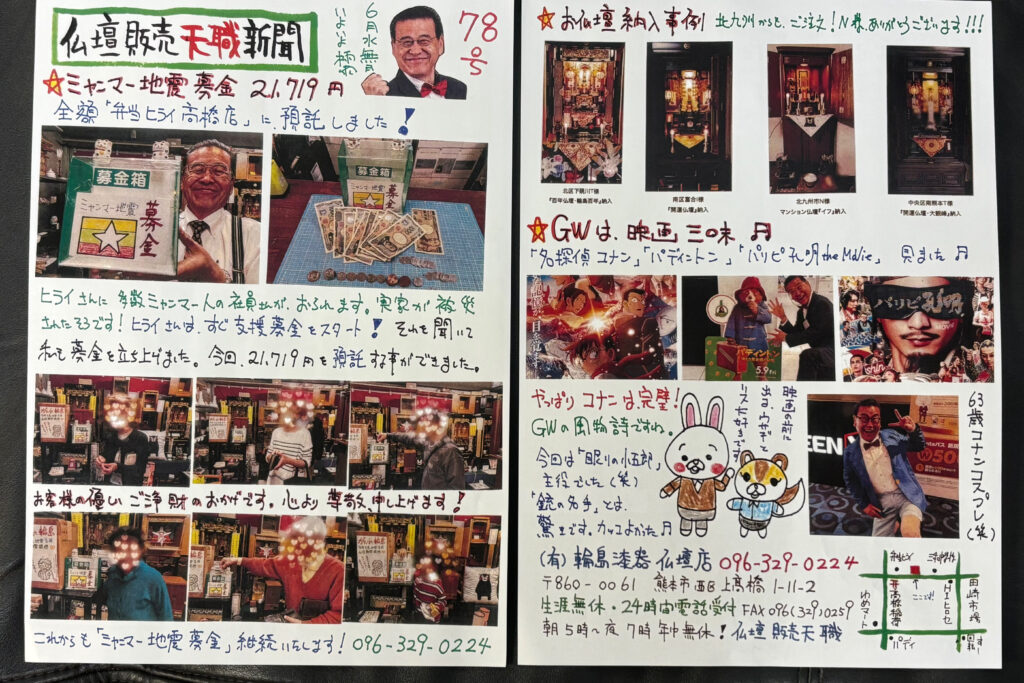 仏壇販売天職新聞
6月水無月
いよいよ梅雨
78号
ミャンマー地震募金 21,719円
全額「弁当ヒライ高橋店」に、預託しました!
募金箱
ミャンマー地震
募金
募金箱
ミャンマー地震
募金
ヒライさんに多数ミャンマー人の社員さんが、おられます。実家が被災
されたそうです!ヒライさんは、すぐ支援募金をスタート!それを聞いて
私も募金を立ち上げました。今回、21,719円を預託する事ができました。
お客様の優しいご浄財のおかげです。心より尊敬申し上げます!
これからも「ミャンマー地震募金」継続いたします!096-329-0224
お仏壇納入事例 北九州からも、ご注文!N様、ありがとうございます!!!
北区下硯川T様
『百年仏壇・輪島百年』納入
南区富合I様
『開運仏壇』納入
北九州市N様
マンション仏壇『イフ』納入
中央区南熊本T様
『開運仏壇・大観峰』納入
GWは、映画三昧♬
「名探偵コナン」「パディントン」「パリピ孔明 the Movie」見ました♬
パディントン
5.9
パリピ孔明
やっぱりコナンは、完璧!
GWの風物詩ですね。
今回は「眠りの小五郎」
主役でした(笑)
「銃の名手」とは、
驚きです。カッコよかった♬
映画の前に
出る、ウサギと
リス大好きです
63歳コナンコスプレ(笑)
(有)輪島漆器仏壇店 096-329-0224
〒860-0061 熊本市西区上高橋1-11-2
生涯無休・24時間電話受付 FAX096(329)0259
朝5時~夜7時年中無休!仏壇販売天職
ここです!
田崎市場
ゆめマート
パディ